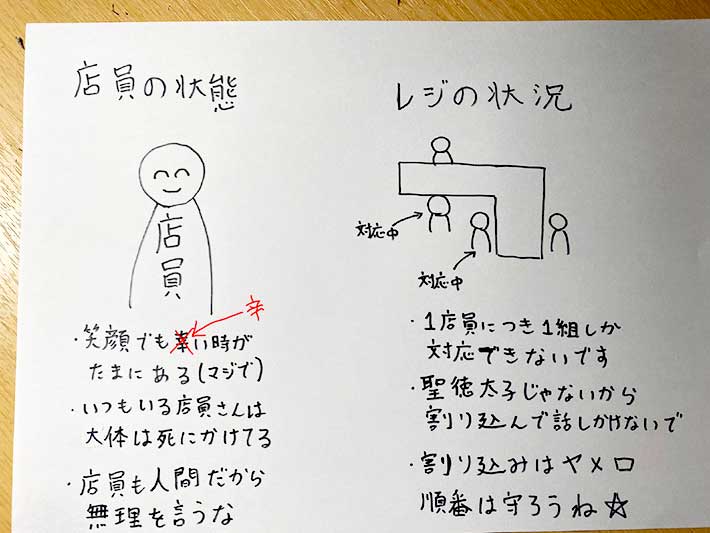 店員の状態
店員
・笑顔でも幸い時が
辛
たまにある(マジで)
・いつもいる店員さんは
大体は死にかけてる
・店員も人間だから
無理を言うな
レジの状況
対応中
対応中
・1店員につき1組しか
対応できないです
・聖徳太子じゃないから
割り込んで話しかけないで
・割り込みはヤメロ
順番は守ろうね☆